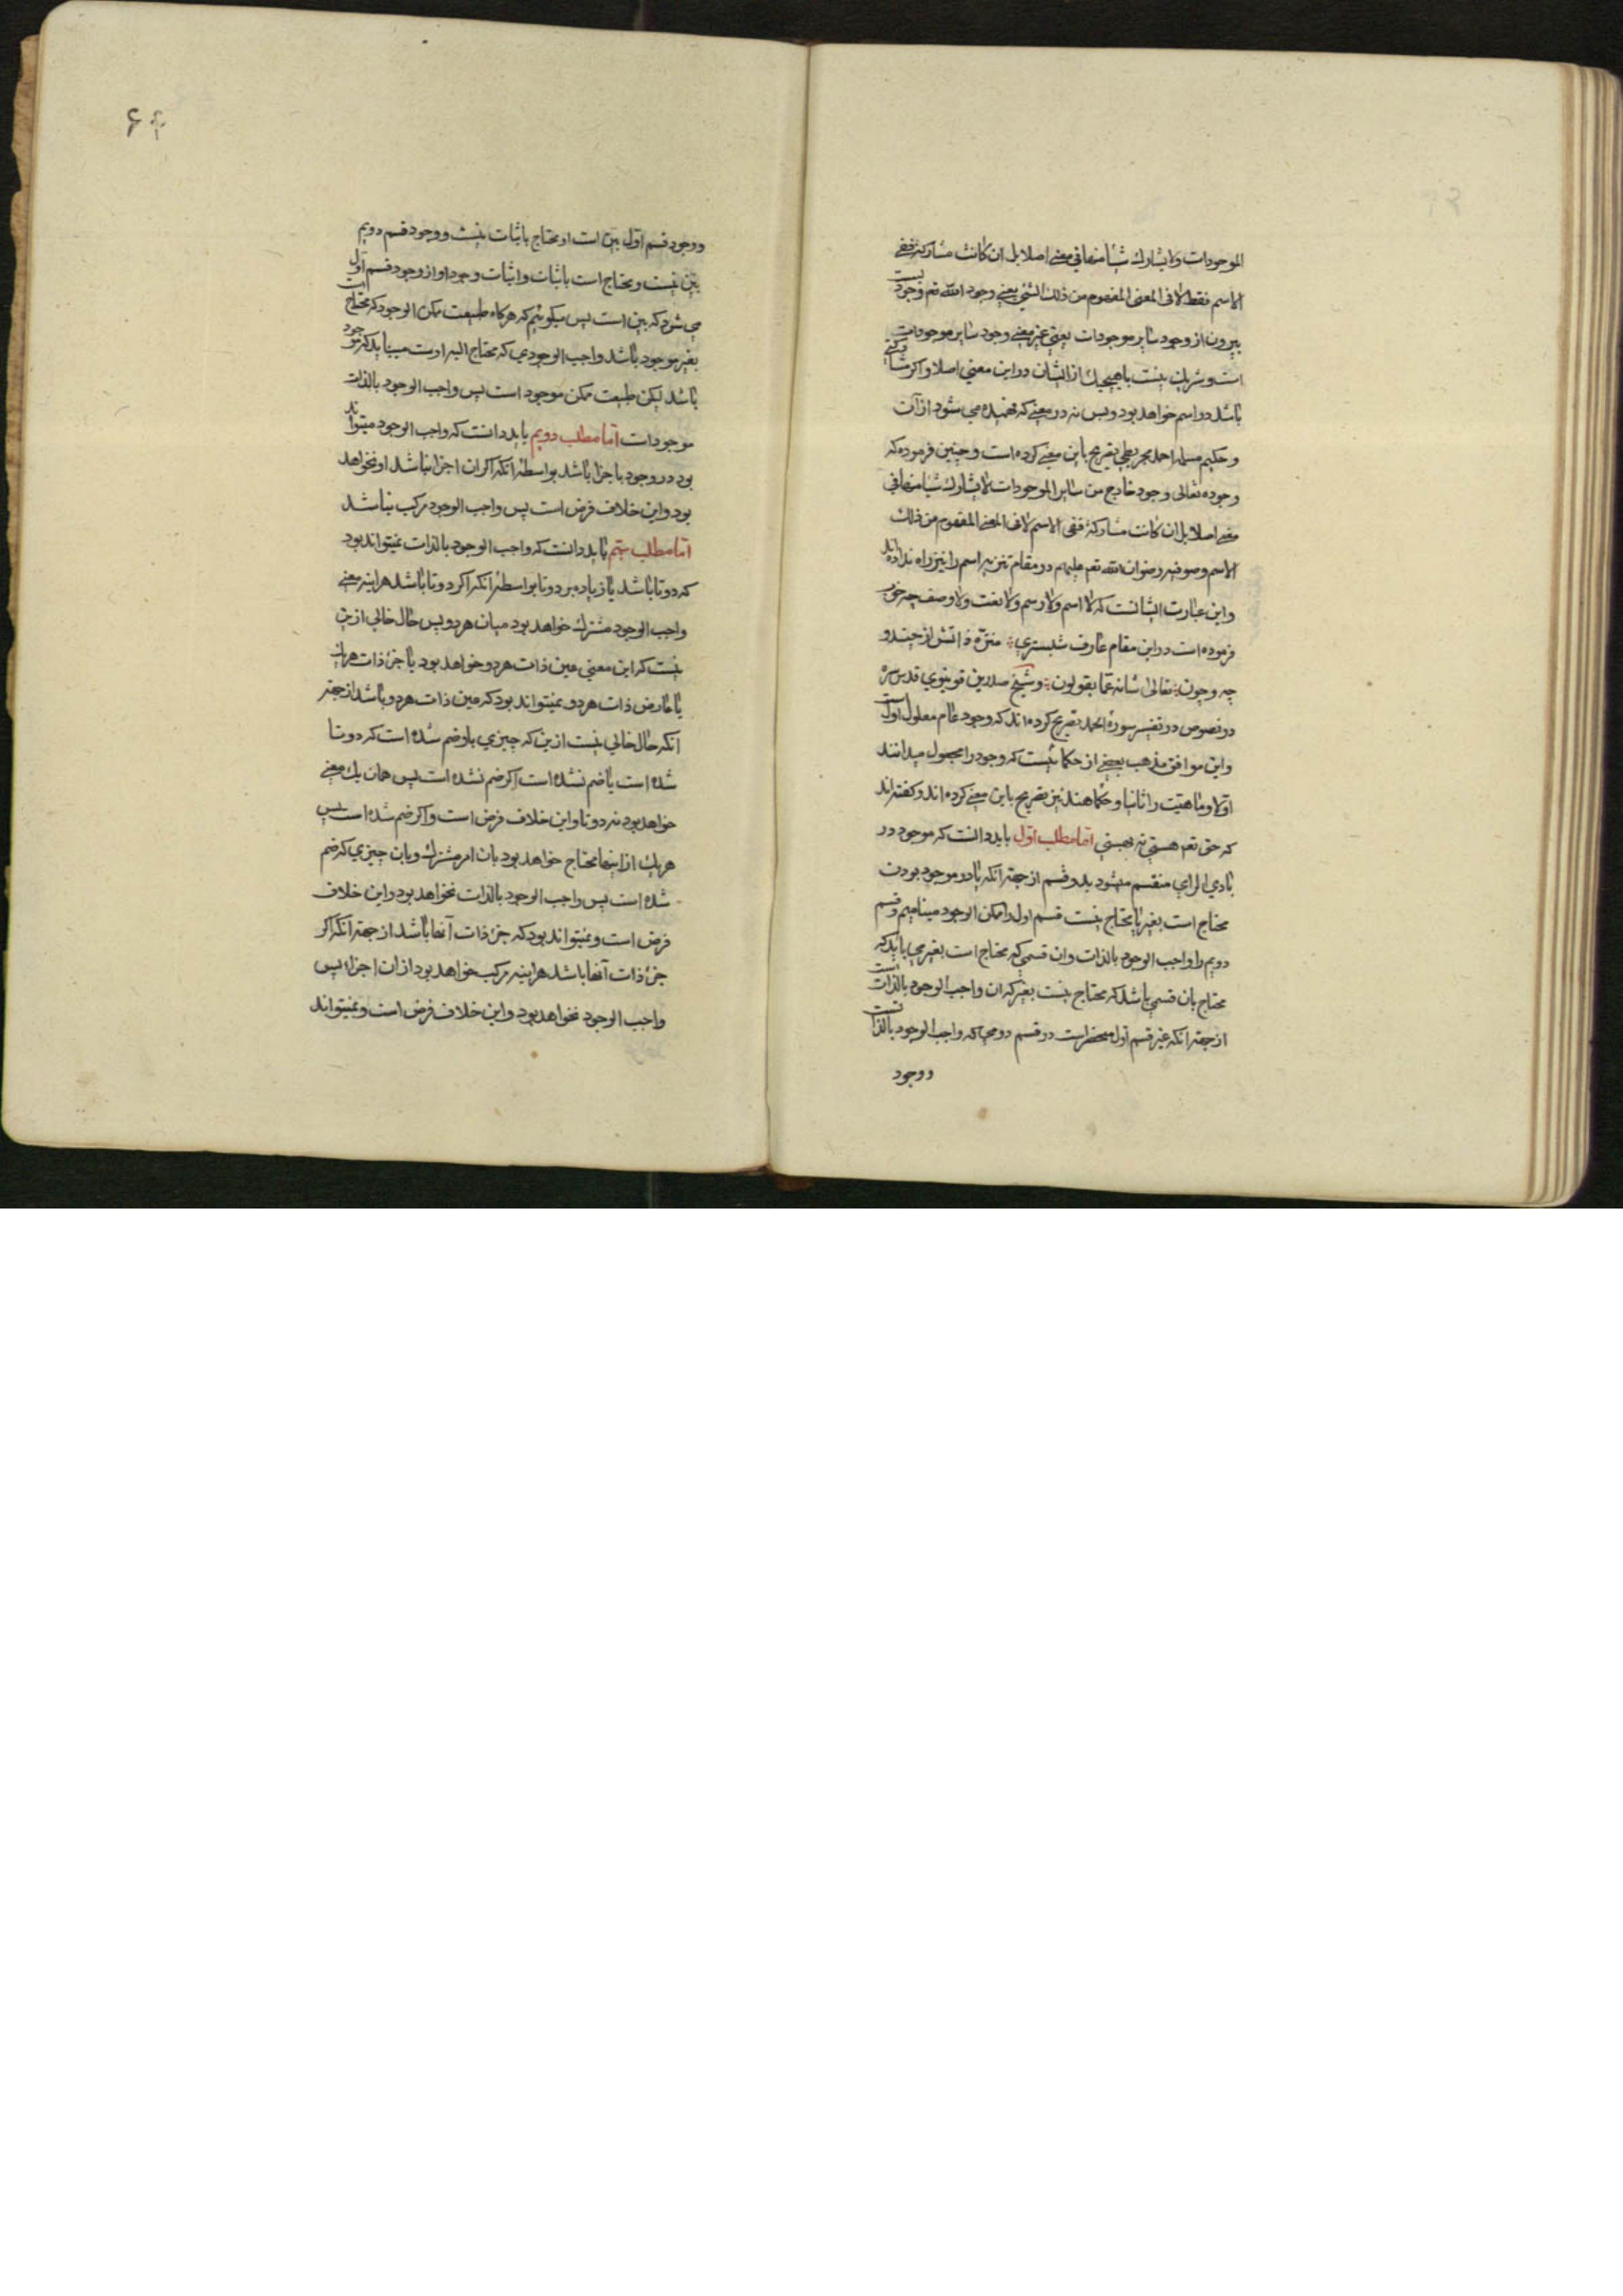 الموجودات ولا یشارك شیئا منها فی معنی اصلا بل ان کانت مشارکة ففی
الاسم فقط لا فی المعنی المفهوم من ذلك الشئ یعنی وجود الله تعم وجودیست
بیرون از وجود سایر موجودات یعنی غیر معنی وجود سایر موجودات
است و شریك نیست با هیچیك از ایشان در این معنی اصلا و اکر مشارکتی
باشد در اسم خواهد بود و بس نه در معنی که فهمیده می شود از آن
و حکیم مسلمه احمد مجریطی تصریح باین معنی کرده است و چنین فرموده که
وجوده تعالی وجود خارج من سایر الموجودات لا یشارك شیا منها فی
معنی اصلا بل ان کانت مشارکة ففی الاسم لا فی المعنی المفهوم من ذلك
الاسم و صوفیه رضوان الله تعم علیهم در مقام تنزیه اسم را نیز راه نداده اند
و این عبارت ایشانست که لا اسم ولا رسم ولا نعت ولا وصف چه خوش
فرموده است در این مقام عارف شبستری منزه ذاتش از چند و
چه و چون تعالی شانه عما یقولون و شیخ صدرین قونیوی قدس سره
در نصوص در تفسیر سورهٔ الحمد تصریح کرده اند که وجود عام معلول اولست
و این موافق مذهب بعضی از حکما ئیست که وجود را مجعول میدانند
اولا و ماهیت را ثانیا و حکما هند نیز تصریح باین معنی کرده اند و کفته اند
که حق تعم هستی نه هستی اما مطلب اول باید دانست که موجود در
بادی الرای منقسم میشود بدو قسم از جهة انکه یا در موجود بودن
محتاج است بغیر یا محتاج نیست قسم اول را ممکن الوجود مینامیم و قسم
دویم را واجب الوجود بالذات و ان قسمی که محتاج است بغیر می باید که
محتاج بان قسمی باشد که محتاج نیست بغیر که ان واجب الوجود بالذات است
از جهة انکه غیر قسم اول منحصر است در قسم دومی که واجب الوجود بالذاتست
و وجود
و وجود قسم اول بین است او محتاج باثبات نیست و وجود قسم دویم
بین نیست و محتاج است باثبات و اثبات وجود او از وجود قسم اول
می شود که بین است پس میکوئیم که هرکاه طبیعت ممکن الوجود که محتاج است
بغیر موجود باشد واجب الوجودی که محتاج الیه اوست میباید که موجود
باشد لیکن طبیعت ممکن موجود است پس واجب الوجود بالذات
موجودات اما مطلب دویم باید دانست که واجب الوجود میتواند
بود در وجود با جزا باشد بواسطهٔ انکه اکر ان اجزا نباشد او نخواهد
بود و این خلاف فرض است پس واجب الوجود مرکب نباشد
اما مطلب سیم باید دانست که واجب الوجود بالذات نمیتواند بود
که دو تا باشد یا زیاده بر دو تا بواسطهٔ انکه اکر دو تا باشد هراینه معنی
واجب الوجود مشترك خواهد بود میان هر دو پس حال خالی ازین
نیست که این معنی عین ذات هر دو خواهد بود یا جزء ذات هر یك
یا عارض ذات هر دو و نمیتواند بود که عین ذات هر دو باشد از جهة
انکه حال خالی نیست ازین که چیزی باو ضم شده است که دو تا
شده است یا ضم نشده است اکر ضم نشده است پس همان یك معنی
خواهد بود نه دو تا و این خلاف فرض است و اکر ضم شده است پس
هر یك از اینها محتاج خواهد بود بان امر مشترك و بان چیزی که ضم
شده است پس واجب الوجود بالذات نخواهد بود و این خلاف
فرض است و نمیتواند بود که جزء ذات آنها باشد از جهة انکه اکر
جزء ذات آنها باشد هراینه مرکب خواهد بود از ان اجزاء پس
واجب الوجود نخواهد بود و این خلاف فرض است و نمیتواند